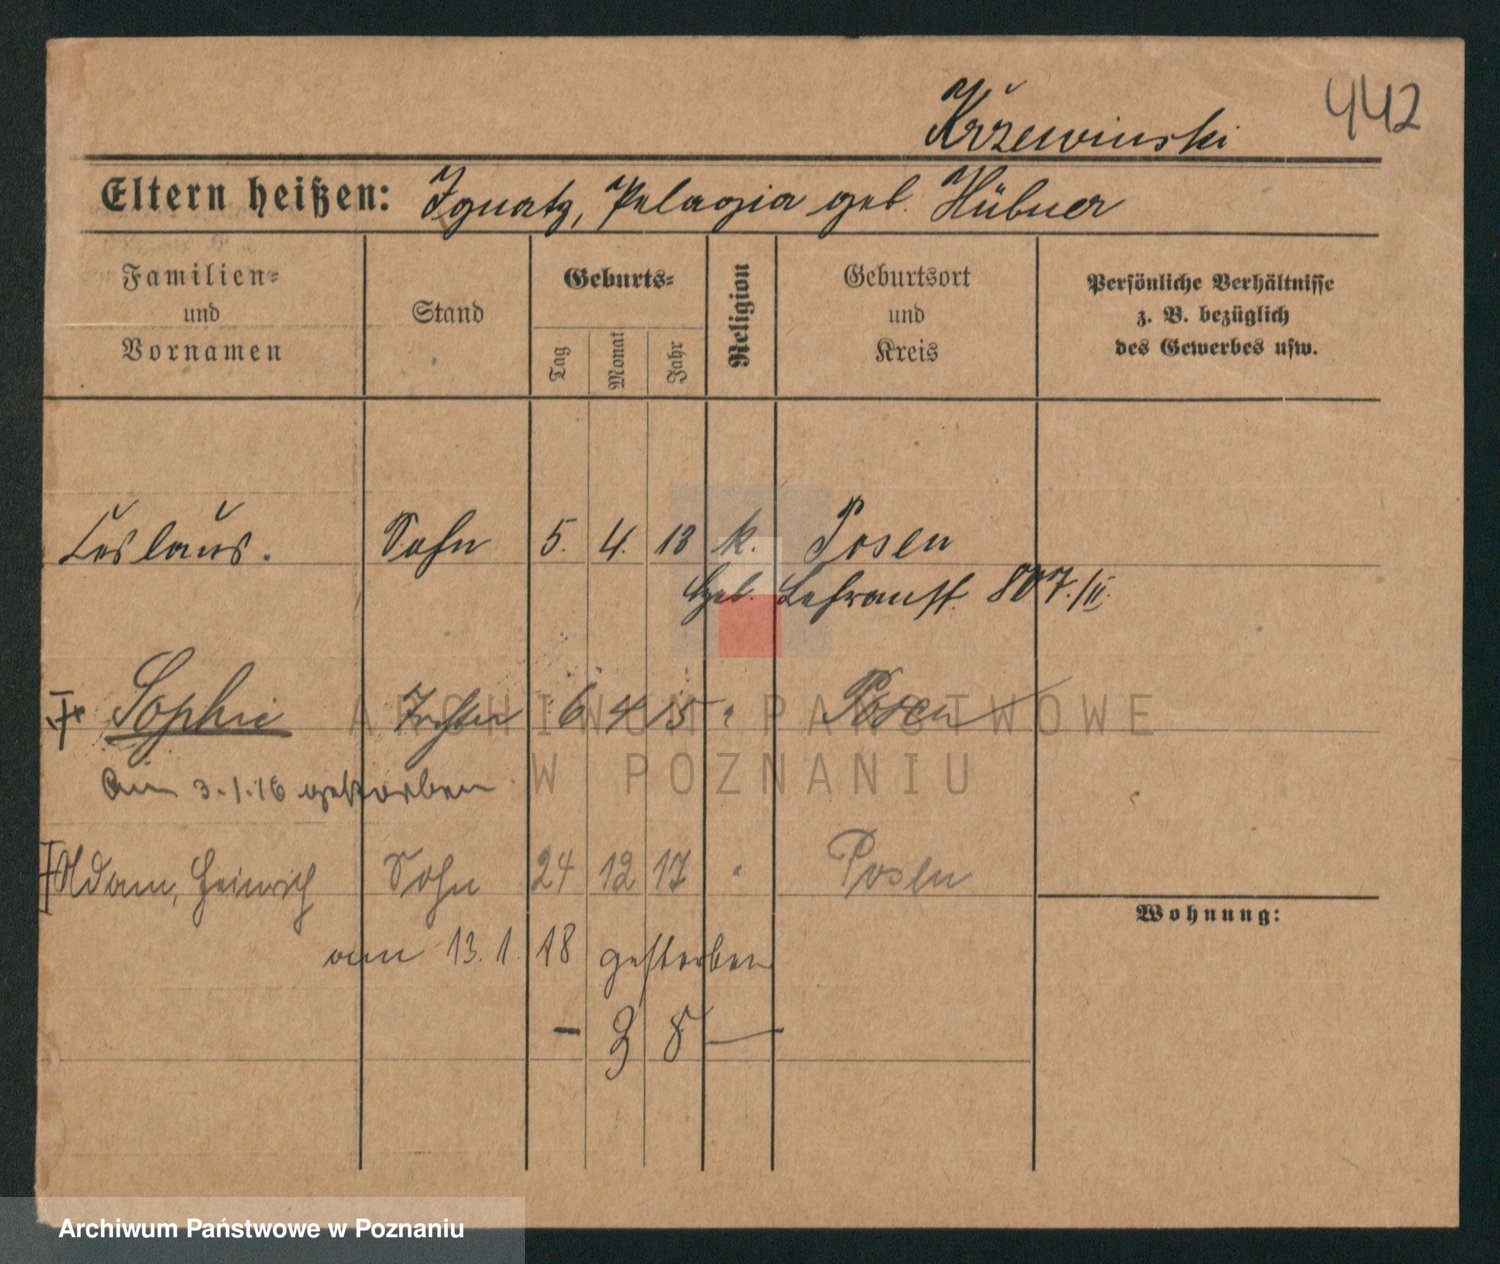 Krzewinski
442
Eltern heißen: Ignatz, Pelagia geb. Hübner
Familien-
und
Vornamen
Stand
Geburts-
Tag
Monat
Jahr
Religion
Geburtsort
und
Kreis
Persönliche Verhältnisse
z. B. bezüglich
des Gewerbes usw.
Ceslaus. Sohn 5. 4. 13 k. Posen
Geb. Lehranst. 807./II.
Sophie Tochter 6 4 15 " Posen
Am 3.1.16 gestorben
Adam, Heinrich Sohn 24 12 17 " Posen
am 13.1.18 gestorben
Wohnung:
ARCHIWUM PAŃSTWOWE
W POZNANIU
Archiwum Państwowe w Poznaniu